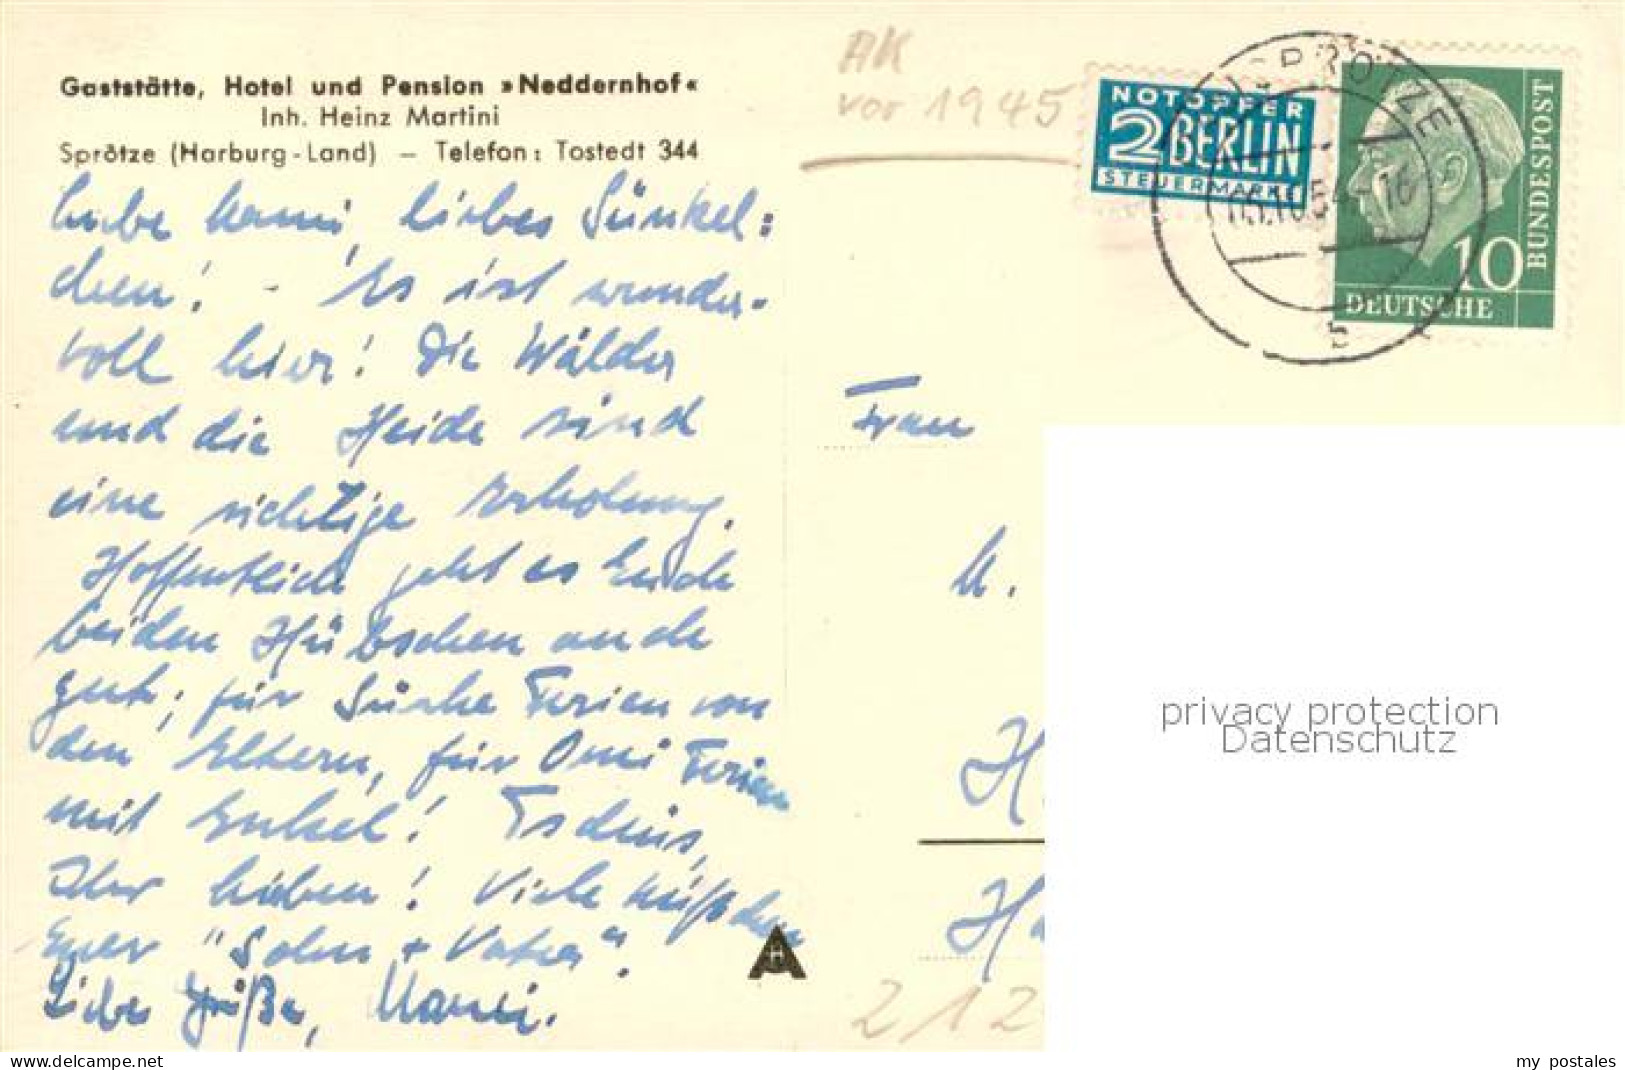 Gaststätte, Hotel und Pension »Neddernhof«
Inh. Heinz Martini
Sprötze (Harburg-Land) — Telefon: Tostedt 344
AK
vor 1945
NOTOPFER
2 BERLIN
STEUERMARKE
SPRÖTZE
b
10
DEUTSCHE
BUNDESPOST
Liebe Mami, liebes
chen! - Es ist wunder-
voll hier! Die Wälder
und die Heide sind
eine richtige Erholung.
Hoffentlich geht es Euch
beiden Hübschen auch
gut; für Ferien von
den Eltern, für Omi Ferien
mit Enkel! Tschüs,
Ihr Lieben! Viele Küßchen
Euer "Sohn + Vater".
Liebe Grüße,
Frau
H
Ha
212
privacy protection
Datenschutz
delcampe.net
my_postales